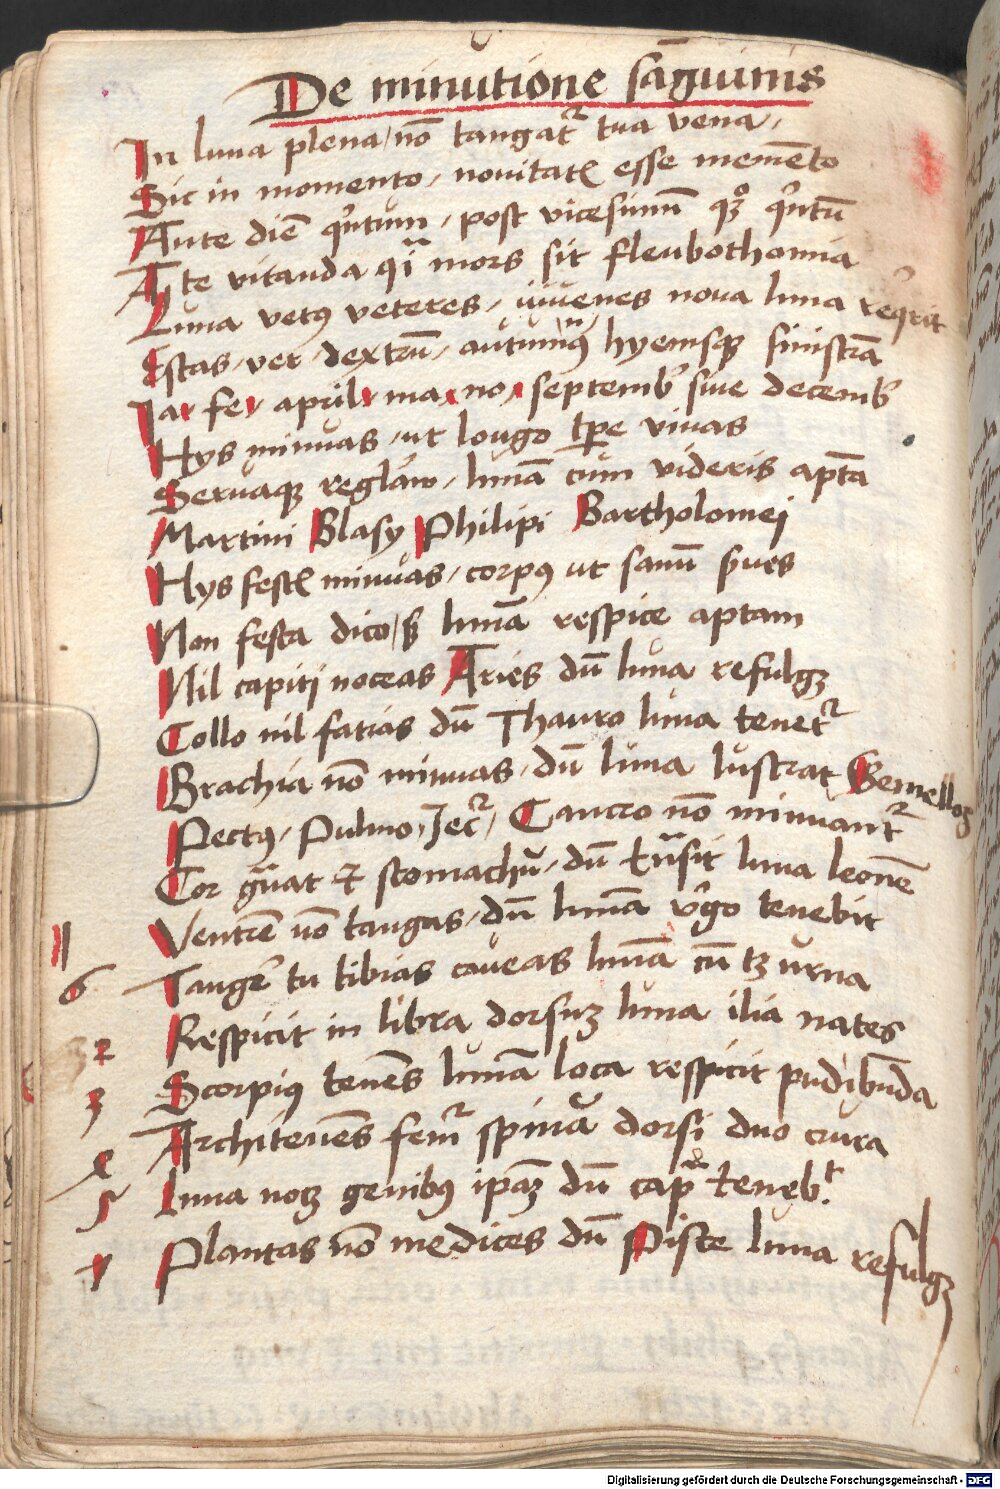 De minutione sāguinis
In luna plena / nō tangat᷑ tua vena /
Sic in momento / novitatꝭ esse memēto
Ante diē qͥntum / post vicesimū qꝫ qͥntū
Ante vitanda qͥ mors sit fleubothomia
Luna vetꝰ veteres / iuvenes nova luna reqͥrit
Estas / ver / dextrū / autumnꝰ hyemsqꝫ sinistrā
Ia fe april ma no septembͬ sive decembͬ
Hys minuas / ut longo tꝑe vivas
Servaqꝫ / lunā cum videris aptā
Martini Blasy Philipi Bartholomei
Hys festꝭ minuas / corpꝰ ut sanū
Non festa dico / sꝫ lunā respice aptam
Nil capiti noceas Aries dū luna refulgꝫ
Collo nil fatias dū Thauro luna tenet᷑
Brachia nō minuas / dū luna lustrat Gemelloꝝ
Pectꝰ / Pulmo / Jec᷑ / Cancro nō minuant᷑
Cor gͣvat et stomachū / dū trāsit luna leonē
Ventrē nō tangas / dū lunā vͥgo tenebit
6 Tangeͬ tu tibias caveas lunā cū tꝫ urna
2 Respicit in libra dorsuꝫ luna ilia nates
3 Scorpiꝰ tenēs lunā loca respicit pudibūda
Architenēs fem᷑ spinā dorsi duo crura
5 Luna nocꝫ genibꝰ ipāꝫ dū capͣ tenebᵗ.
Plantas nō medices dū Pisce luna refulgꝫ
Digitalisierung gefördert durch die Deutsche Forschungsgemeinschaft - DFG